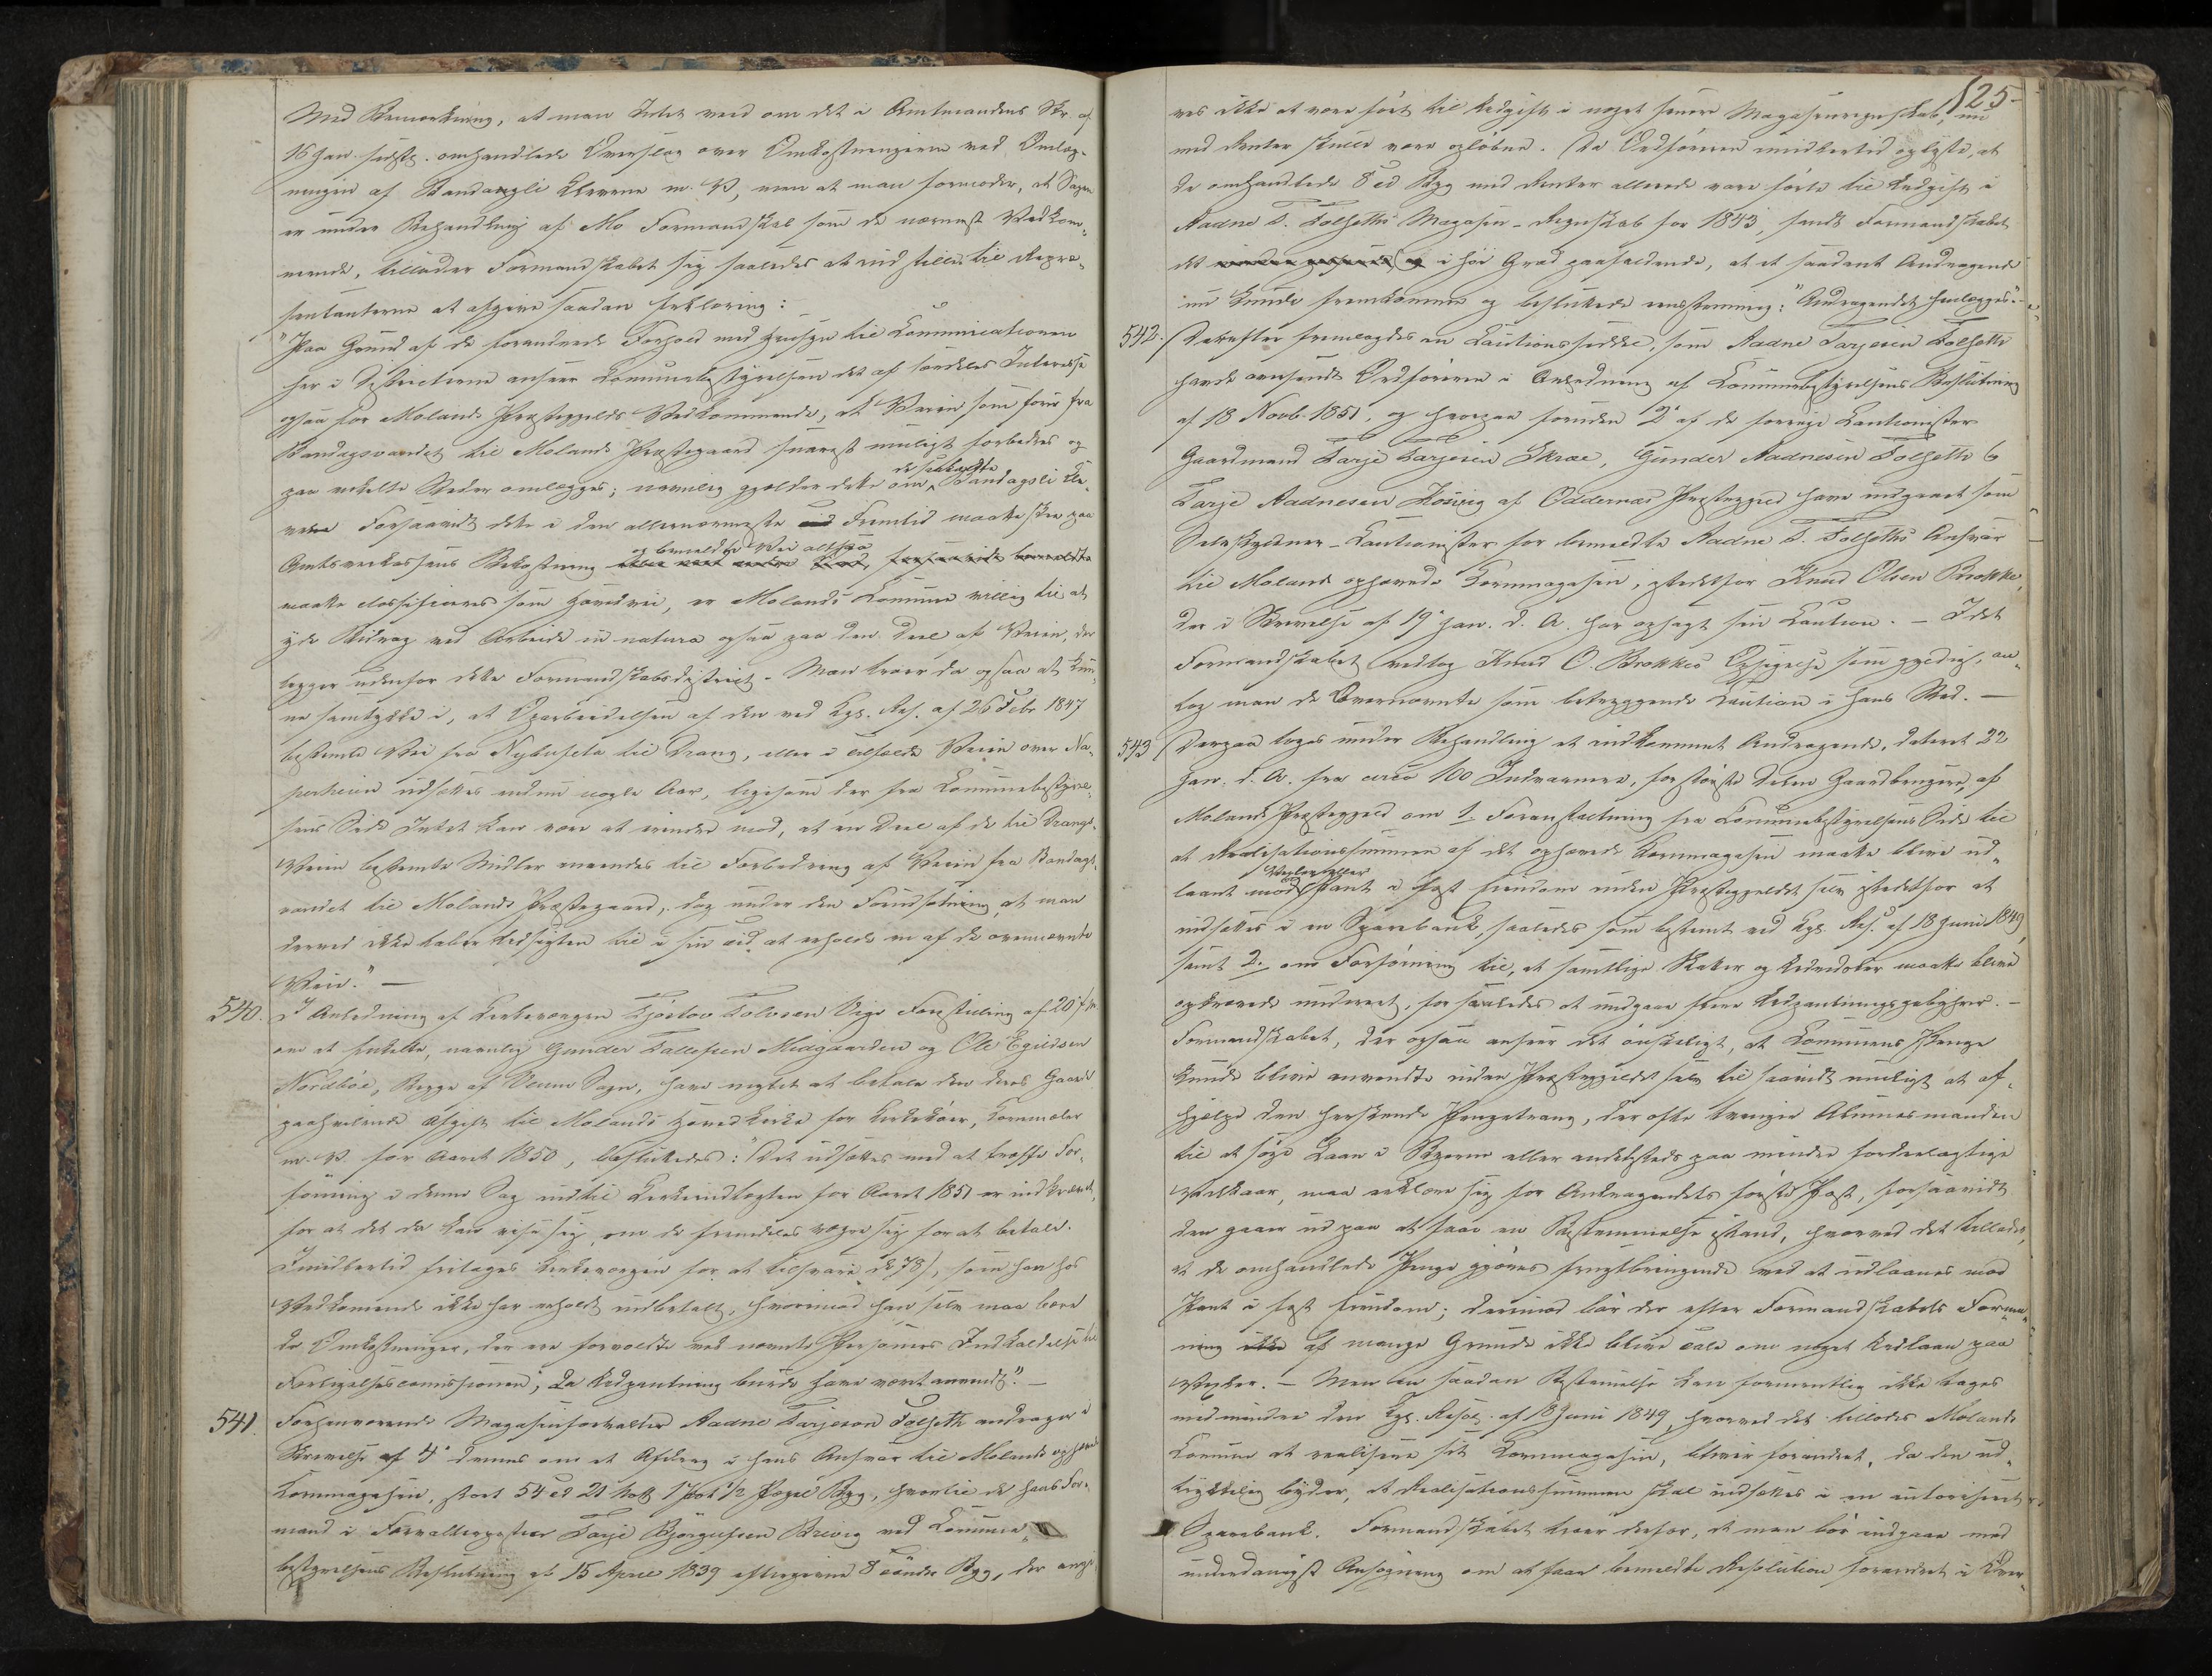 Med Bemærkning, at man Intet veed om det i Amtmandens Skr. af
16 Jan. sidstl. omhandlede Overslag over Omkostningerne ved Omlæg-
ningen af Bandagsli Kleverne m. V, men at man formoder, at Sagen
er under Behandling af Mo Formandskab som de nærmest Vedkom-
mende, tillader Formandskabet sig saaledes at indstille til Repræ-
sentanterne at afgive saadan Erklæring:
"Paa Grund af de forandrede Forhold med Hensyn til Communicationen
her i Districterne anseer Communebestyrelsen det af særdeles Interesse
ogsaa for Molands Præstegjelds Vedkommende, at Veien som fører fra
Bandagsvandet til Molands Præstegaard snarest muligt forbedres og
de saakaldte
paa enkelte Steder omlægges; navnlig gjælder dette om Bandagsli Kle-
verne Forsaavidt dette i den allernærmeste Fremtid maatte skee paa
og bemeldte Vei altsaa
Amtsveikassens Bekostning
maatte classificeres som Hovedvei, er Molands Commune villig til at
yde Bidrag ved Arbeide in natura ogsaa paa den Deel af Veien, der
ligger udenfor dette Formandskabsdistrict. Man troer da ogsaa at kun-
ne samtykke i, at Oparbeidelsen af den ved Kgl. Res. af 26 Febr 1847
bestemte Vei fra Nybusela til Drang, eller i Tilfælde Veien over Na-
perheien udsættes endnu nogle Aar, ligesom der fra Communebestyrel-
sens Side Intet kan være at erindre mod, at en Deel af de til Drangs-
Veien bestemte Midler anvendes til Forbedring af Veien fra Bandags-
vandet til Molands Præstegaard, dog under den Forudsætning at man
derved ikke taber Udsigten til i sin Tid at erholde en af de ovennævnte
Veie." —
540. I Anledning af Kirkeværgen Kjøstov Tolvsen Vigs Forestilling af 20 f. M.
om at Enkelte, navnlig Gunder Tallefsen Midgaarden og Ole Eguldsen
Nordbøe, Begge af Veum Sogn, have negtet at betale den deres Gaarde
paahvilende Afgift til Molands Hovedkirke for Kirkekøer, Kornmæler
m. V. for Aaret 1850, besluttedes: "Det udsættes med at træffe For-
føining i denne Sag indtil Kirkeindtægten for Aaret 1851 er indkrævet,
for at det da kan vise sig, om de fremdeles vægre sig for at betale.
Imidlertid fritages Kirkeværgen for at tilsvare de 78 , som han hos
Vedkommende ikke har erholdt indbetalt, hvorimod han selv maa bære
de Omkostninger, der ere forvoldte ved nævnte Personers Indkaldelse til
Forligelsescommissionen, da Udpantning burde have været anvendt." —
541. Forhenværende Magasinforvalter Aadne Tarjeson Folseth andrager i
Skrivelse af 4de dennes om et Afdrag i hans Ansvar til Molands ophævede
Kornmagasin, stort 54 Td 21 1 Pot 1/2 Pægel Byg, hvortil de hans For-
mand i Forvalterposten Tarje Bjørgufsen Breivig ved Commune-
bestyrelsens Beslutning af 15 April 1839 eftergivne 8 Tønder Byg, der angi-
125
ves ikke at være ført til Udgift i noget senere Magasinregnskab, nu
med Renter skulle være opløbne. Da Ordføreren imidlertid oplyste, at
de omhandlede 8 Td Byg med Renter allerede vare førte til Udgift i
Aadne T. Folseths Magasin-Regnskab for 1843, fandt Formandskabet
det i høi Grad paafaldende, at et saadant Andragende
nu kunde fremkomme og besluttede eenstemmig: "Andragendet henlægges".
542. Derefter fremlagdes en Cautionsseddel, som Aadne Tarjesen Folseth
havde oversendt Ordføreren i Anledning af Communebestyrelsens Beslutning
af 18 Novb. 1851. og hvorpaa foruden 2 af de forrige Cautionister
Gaardmand Tarje Tarjesen Skræe, Gunder Aadnesen Folseth &
Tarje Aadnesen Hosvig af Oddernæs Præstegjeld have indgaaet som
Selvskyldner-Cautionister for bemeldte Aadne T. Folseths Ansvar
til Molands ophævede Kornmagasin, istedetfor Knud Olsen Brokke,
der i Skrivelse af 19 Jan. d. A. har opsagt sin Caution. — Idet
Formandskabet vedtog Knud O. Brokkes Opsigelse som gyldig, an-
tog man de Ovennævnte som betryggende Caution i hans Sted. —
543 Derpaa toges under Behandling et indkommet Andragende, dateret 22
Jan. d. A. fra circa 100 Indvaanere, for største Delen Gaardbrugere, af
Molands Præstegjeld om 1. Foranstaltning fra Communebestyrelsens Side til
at Realisationssummen af det ophævede Kornmagasin maatte blive ud-
Vexler eller
laant mod Pant i fast Eiendom inden Præstegjeldet selv istedetfor at
indsættes i en Sparebank, saaledes som bestemt ved Kgl. Res. af 18 Juni 1849,
samt 2. om Forføining til, at samtlige Skatter og Udredsler maatte blive
opkrævede underet, for saaledes at undgaae flere Udpantningsgebyhrer. —
Formandskabet, der ogsaa anseer det ønskeligt, at Communens Penge
kunde blive anvendte inden Præstegjeldet selv til saavidt muligt at af-
hjælpe den herskende Pengetrang, der ofte tvinger Almuesmanden
til at søge Laan i Byerne eller andetsteds paa mindre fordeelagtige
Vilkaar, maa erklære sig for Andragendets første Post, forsaavidt
den gaaer ud paa at faae en Bestemmelse istand, hvorved det tillades,
at de omhandlede Penge gjøres frugtbringende ved at udlaanes mod
Pant i fast Eiendom; derimod bør der efter Formandskabets For-me-
ning af mange Grunde ikke blive Tale om noget Udlaan paa
Vexler. — Men en saadan Bestemmelse kan formentlig ikke tages
medmindre den Kgl. Resol. af 18 Juni 1849, hvorved det tillodes Molands
Commune at realisere sit Kornmagasin, bliver forandret, da den ud-
trykkelig byder, at Realisationssummen skal indsættes i en autoriseret
Sparebank. Formandskabet troer derfor, at man bør indgaae med
underdanigst Ansøgning om at faae bemeldte Resolution forandret i Over-